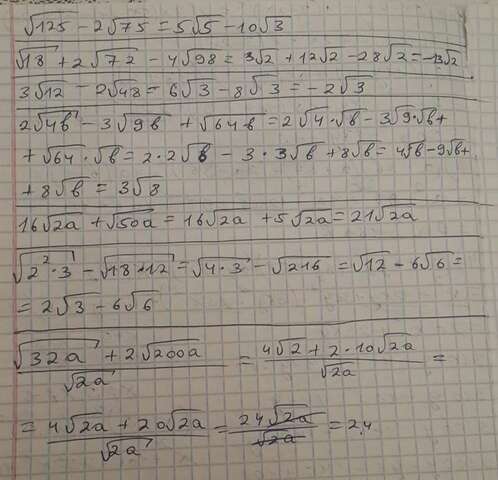 √125 - 2√75 = 5√5 - 10√3
√18 + 2√72 - 4√98 = 3√2 + 12√2 - 28√2 = -13√2
3√12 - 2√48 = 6√3 - 8√3 = -2√3
2√4b - 3√9b + √64b = 2√4·√b - 3√9·√b +
+ √64·√b = 2·2√b - 3·3√b + 8√b = 4√b - 9√b +
+ 8√b = 3√8
16√2a + √50a = 16√2a + 5√2a = 21√2a
√2²·3 - √18·12 = √4·3 - √216 = √12 - 6√6 =
= 2√3 - 6√6
(√32a + 2√200a)/√2a = (4√2 + 2·10√2a)/√2a =
= (4√2a + 20√2a)/√2a = 24√2a/√2a = 24